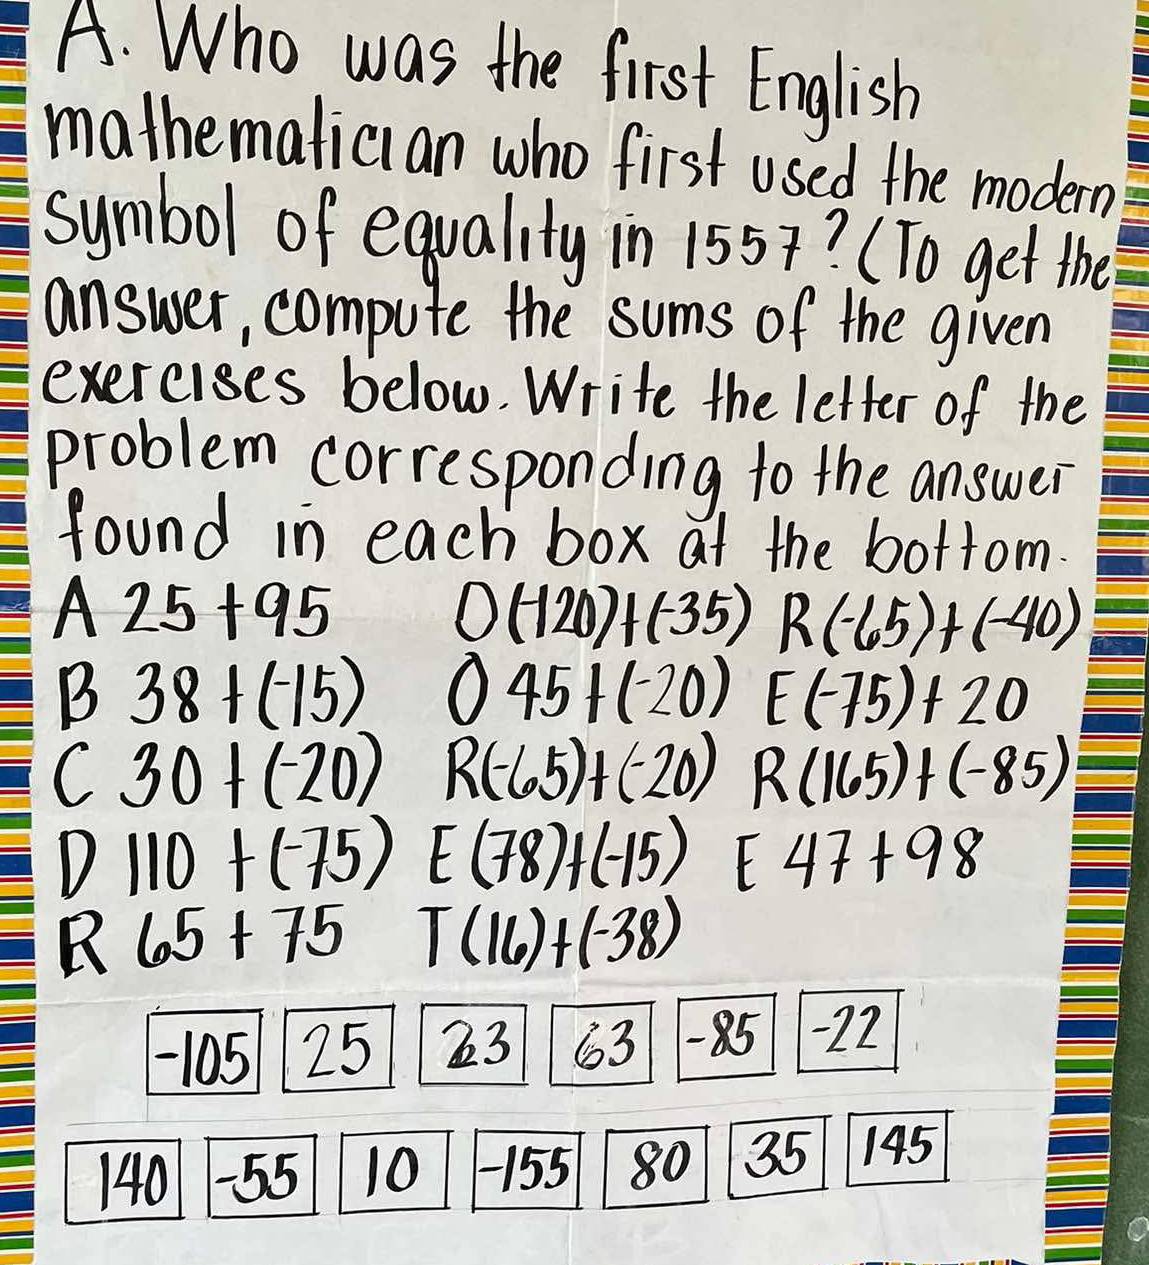 A. Who was the first English
mathematician who first used the modern
symbol of equality in 1557? (To get the
answer, compute the sums of the given
exercises below. Write the letter of the
problem corresponding to the answer
found in each box at the bottom.
A 25+95 O(-120)+(-35) R(-65)+(-40)
B 38+(-15) O 45+(-20) E(-75)+20
C 30+(-20) R(-65)+(-20) R(165)+(-85)
D 110+(-75) E(78)+(-15) E 47+98
R 65+75 T(16)+(-38)
-105 25 23 63 -85 -22
140 -55 10 -155 80 35 145